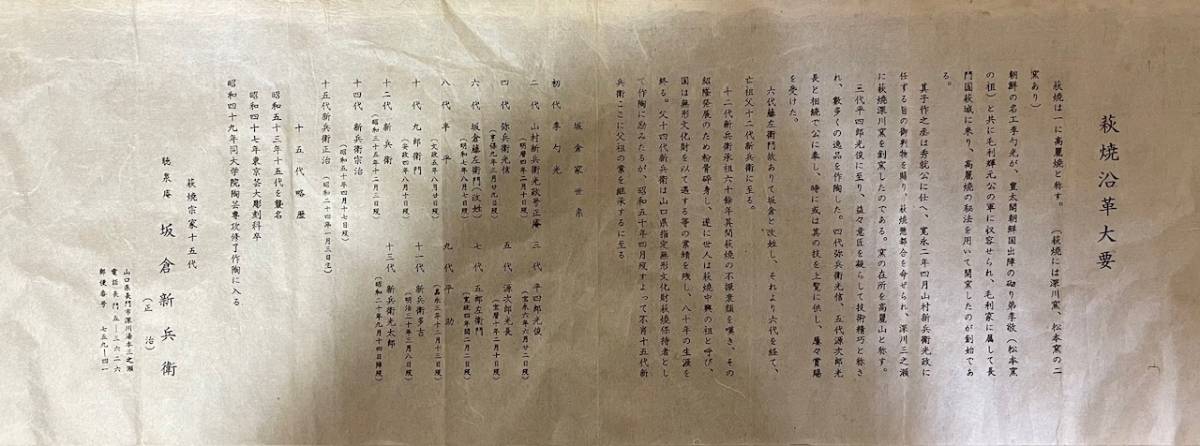 萩焼沿革大要
萩焼は一に高麗焼と称す。（萩焼には深川窯、松本窯の二
窯あり）
朝鮮の名工李勺光が、豊太閤朝鮮国出陣の砌り弟李敬（松本窯
の祖）と共に毛利輝元公の軍に収容せられ、毛利家に属して長
門国萩城に来り、高麗焼の秘法を用いて開窯したのが創始であ
る。
其子作之丞は秀就公に仕へ、寛永二年四月山村新兵衛光政に
任する旨の御判物を賜り、萩焼惣都合を命ぜられ、深川三之瀬
に萩焼深川窯を創窯したのである。窯の在所を高麗山と称す。
三代平四郎光俊に至り、益々意匠を凝らして技術精巧と称さ
れ、数多くの逸品を作陶した。四代弥兵衛光信、五代源次郎光
長と相続で公に奉し、時に或は其の技を上覧に供し、屡々賞賜
を受けた。
六代藤左衛門故ありて坂倉と改姓し、それより六代を経て、
亡祖父十二代新兵衛に至る。
十二代新兵衛承祖六十餘年其間萩焼の不振衰頽を嘆き、その
紹隆発展のため粉骨砕身し、遂に世人は萩焼中興の祖と呼び、
国は無形文化財を以て遇する等の業績を残し、八十年の生涯を
終る。父十四代新兵衛は山口県指定無形文化財萩焼保持者とし
て作陶に励みたるが、昭和五十年四月歿すよって不肖十五代新
兵衛ここに父祖の業を継承するに至る
坂倉家世系
初代 李勺光
二代 山村新兵衛光政号正庵
（明暦四年二月十日歿）
三代 平四郎光俊
（宝永六年六月廿二日歿）
四代 弥兵衛光信
（享保九年三月廿九日歿）
五代 源次郎光長
（宝暦十年二月十日歿）
六代 坂倉藤左衛門（改姓）
（明和七年八月七日歿）
七代 五郎左衛門
（寛政四年閏二月二日歿）
八代 半平
（文政五年八月十日歿）
九代 平助
（嘉永三年十二月十三日歿）
十代 九郎衛門
（安政四年八月十日歿）
十一代 新兵衛等吉
（明治二十年三月八日歿）
十二代 新兵衛
（昭和三十五年十二月一日歿）
十三代 新兵衛光太郎
（昭和二十年九月十四日陣歿）
十四代 新兵衛宗治
（昭和五十年四月十七日歿）
十五代新兵衛正治（昭和二十四年一月三日生）
十五代略歴
昭和五十三年十五代を襲名
昭和四十七年東京芸大彫刻科卒
昭和四十九年同大学院陶芸専攻修了作陶に入る
萩焼宗家十五代
聴泉庵 坂倉新兵衛
（正治）
山口県長門市深川湯本三之瀬
電話長門五―三六二六
郵便番号 七五九―四一